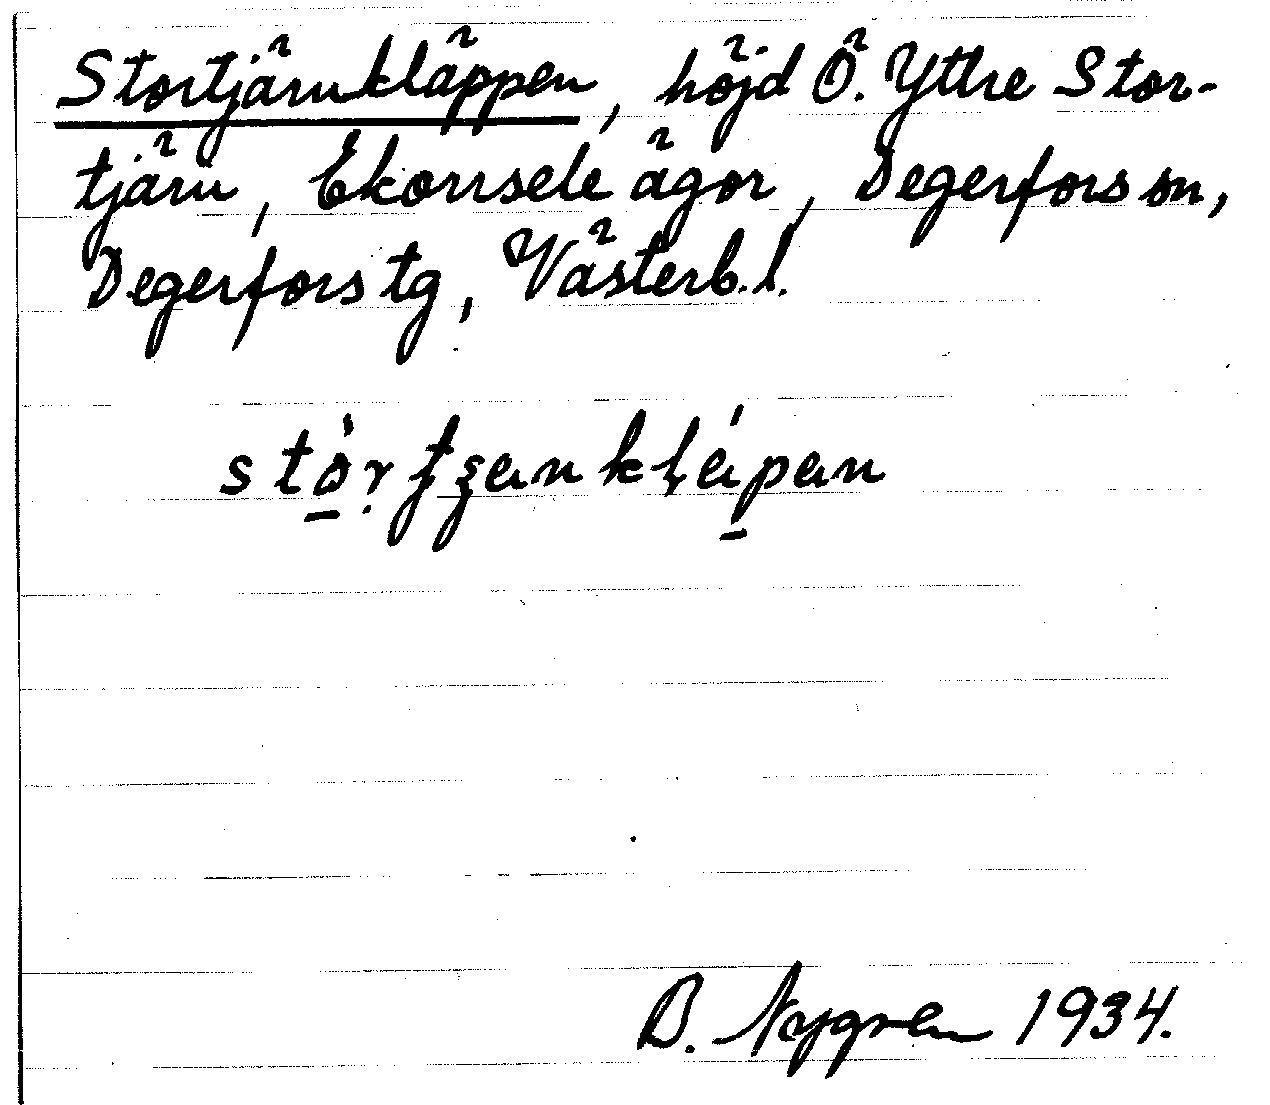 Stortjärnkläppen, höjd Ö. Yttre Stor-
tjärn, Ekorrsele ägor, Degerfors sn,
Degerfors tg, Västerb. l.
B. Nygren 1934.